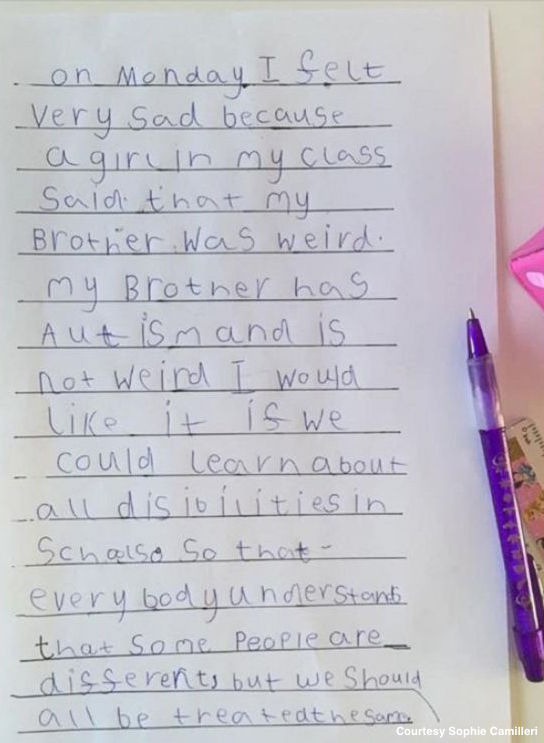 on Monday I felt
Very sad because
a girl in my class
Said that my
Brother Was weird.
my Brother has
Autism and is
not weird I would
like it if we
could learn about
all disibilities in
Schoolso So that
everybody understans
that some People are
differents but we should
all be treated the same
Courtesy Sophie Camilleri